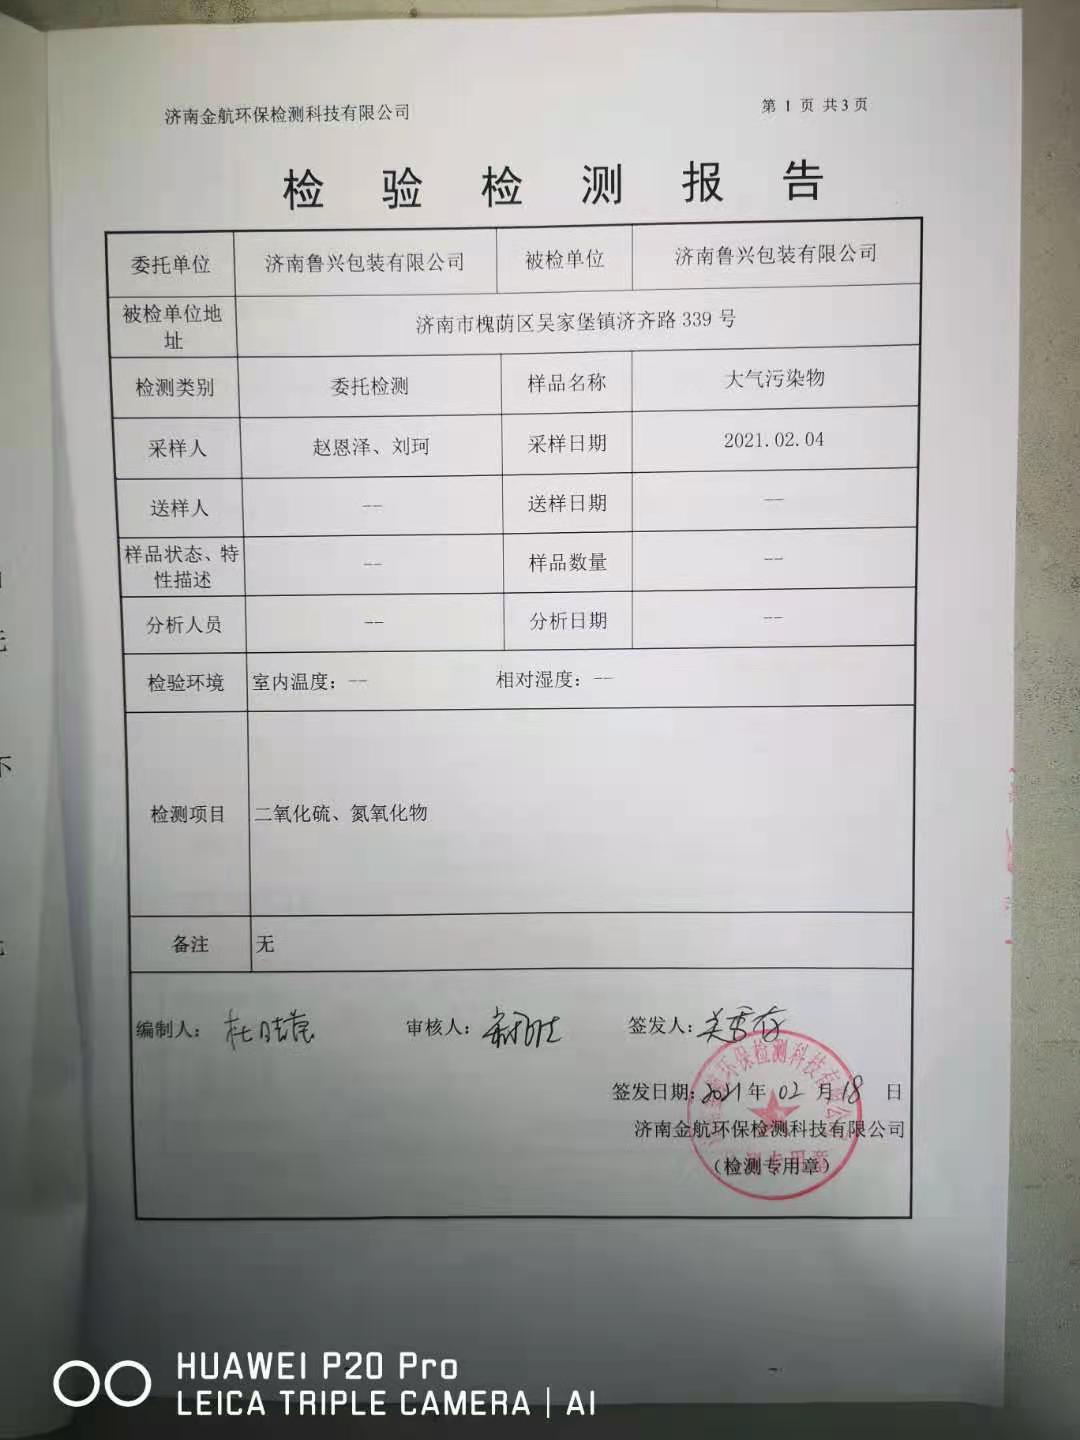 济南金航环保检测科技有限公司
第 1 页 共3页
检 验 检 测 报 告
委托单位 济南鲁兴包装有限公司 被检单位 济南鲁兴包装有限公司
被检单位地
址
济南市槐荫区吴家堡镇济齐路 339 号
检测类别 委托检测 样品名称 大气污染物
采样人 赵恩泽、刘珂 采样日期 2021.02.04
送样人 -- 送样日期 --
样品状态、特
性描述
-- 样品数量 --
分析人员 -- 分析日期 --
检验环境 室内温度：-- 相对湿度：--
检测项目 二氧化硫、氮氧化物
备注 无
编制人： 审核人： 签发人：
签发日期：2021年 02 月 18 日
济南金航环保检测科技有限公司
（检测专用章）
HUAWEI P20 Pro
LEICA TRIPLE CAMERA | AI